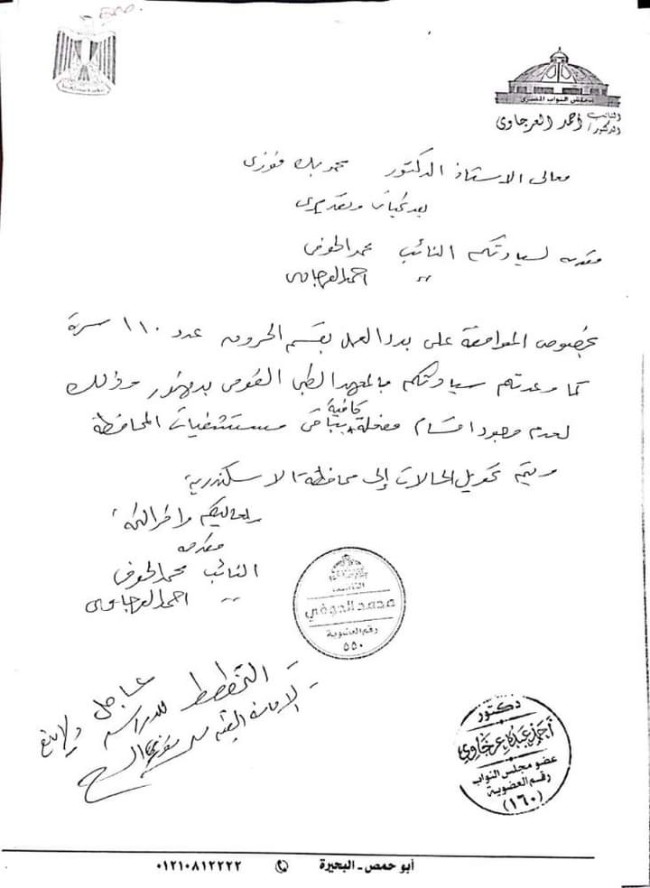 مجلس النواب المصرى
النائب
الدكتور / أحمد العرجاوى
معالى الاستاذ الدكتور محمد بك فوزى
بعد تحياتى وتقديرى
مقدمه لسيادتكم النائب محمد الحوفى
" احمد العرجاوى
بخصوص الموافقة على بدء العمل بقسم الحروق عدد ١١٠ سرة
كما وعدتم سيادتكم بالمعهد الطبى القومى بدمنهور وذلك
لعدم وجود اقسام مفعلة كافية بباقى مستشفيات المحافظة
ويتم تحويل الحالات إلى محافظة الاسكندرية
ولمعاليكم وافر التحية
مقدمه
النائب محمد الحوفى
" احمد العرجاوى
النائب
محمد الحوفي
رقم العضوية
٥٥٠
عاجل
التخطيط للدراسة
دكتور
أحمد عبده عرجاوي
عضو مجلس النواب
رقم العضوية
(١٦٠)
أبو حمص - البحيرة ٠١٢١٠٨١٢٢٢٢